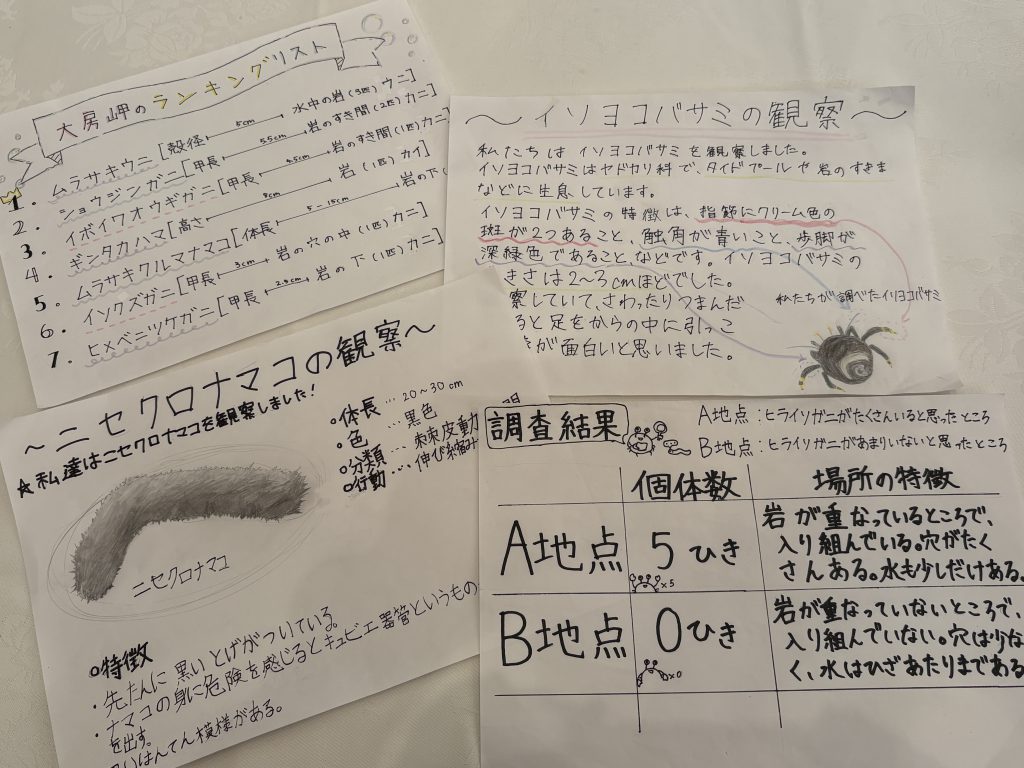 大房岬のランキングリスト
1. ムラサキウニ [殻径 5cm 水中の岩 (3匹) ウニ]
2. ショウジンガニ [甲長 5.5cm 岩のすき間 (2匹) カニ]
3. イボイワオウギガニ [甲長 4.5cm 岩のすき間 (1匹) カニ]
4. ギンタカハマ [高さ 8cm 岩 (1匹) カイ]
5. ムラサキクルマナマコ [体長 5-15cm 岩の下
6. イソクズガニ [甲長 3cm 岩の穴の中 (1匹) カニ]
7. ヒメベニツケガニ [甲長 2.8cm 岩の下 (1匹) カニ]
〜イソヨコバサミの観察〜
私たちはイソヨコバサミを観察しました。
イソヨコバサミはヤドカリ科で、タイドプールや岩のすきま
などに生息しています。
イソヨコバサミの特徴は、指節にクリーム色の
斑が2つあること、触角が青いこと、歩脚が
深緑色であること、などです。イソヨコバサミの
きさは2〜3cmほどでした。
察していて、さわったりつまんだ
ると足をからの中に引っこ
が面白いと思いました。
私たちが調べたイソヨコバサミ
〜ニセクロナマコの観察〜
★私達はニセクロナマコを観察しました!
・体長…20〜30cm
・色…黒色
・分類…棘皮動
・行動…伸び縮み
ニセクロナマコ
・特徴
・先たんに黒いとげがついている。
・ナマコの身に危険を感じるとキュビエ器管というもの
を出す。
はんてん模様がある。
調査結果
A地点:ヒライソガニがたくさんいると思ったところ
B地点:ヒライソガニがあまりいないと思ったところ
個体数 場所の特徴
A地点 5ひき ×5 岩が重なっているところで、
入り組んでいる。穴がたく
さんある。水も少しだけある。
B地点 0ひき ×0 岩が重なっていないところで、
入り組んでいない。穴は少な
く、水はひざあたりまである